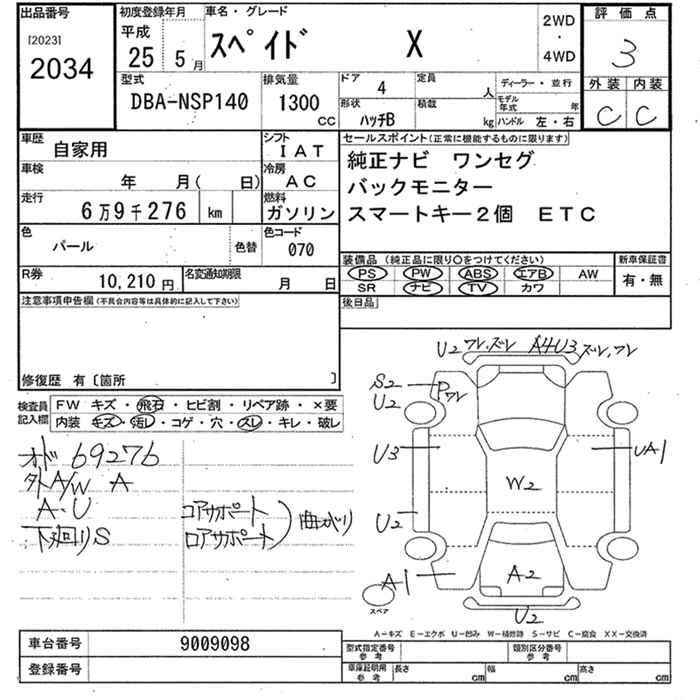 出品番号
[2023]
2034
初度登録年月
平成
25 5 月
車名・グレード
スペイド X
2WD
・
4WD
評価点
3
外装 内装
C C
型式
DBA-NSP140
排気量
1300
CC
ドア 4
定員 人
ディーラー・並行
形状 ハッチB
積載 kg
モデル年式 年
ハンドル 左・右
車歴 自家用
シフト IAT
車検 年 月( 日)
冷房 AC
走行 6万9千276 km
燃料 ガソリン
色 パール
色替
色コード 070
R券 10,210円
名変通知期限 月 日
セールスポイント(正常に機能するものに限ります)
純正ナビ ワンセグ
バックモニター
スマートキー2個 ETC
装備品(純正品に限り○をつけてください)
新車保証書
PS PW ABS エアB AW
SR ナビ TV カワ
有・無
後日品
注意事項申告欄(不具合内容等は具体的に記入して下さい)
修復歴 有〔箇所 〕
検査員記入欄
FW キズ・飛石・ヒビ割・リペア跡・×要
内装 キズ・汚レ・コゲ・穴・スレ・キレ・破レ
オド 69276
外A/W A
A・U
下廻りS
コアサポート
ロアサポート
曲がり
U2 ワレ、ズレ A4U3 ズレ、ワレ
S2 Pワレ
U2
U3 UA1
W2
U2
A1 A2
スペア
U2
A-キズ E-エクボ U-凹み W-補修跡 S-サビ C-腐食 XX-交換済
車台番号 9009098
登録番号
型式指定番号 参考
類別区分番号 参考
車庫証明用 参考
長さ cm 幅 cm 高さ cm